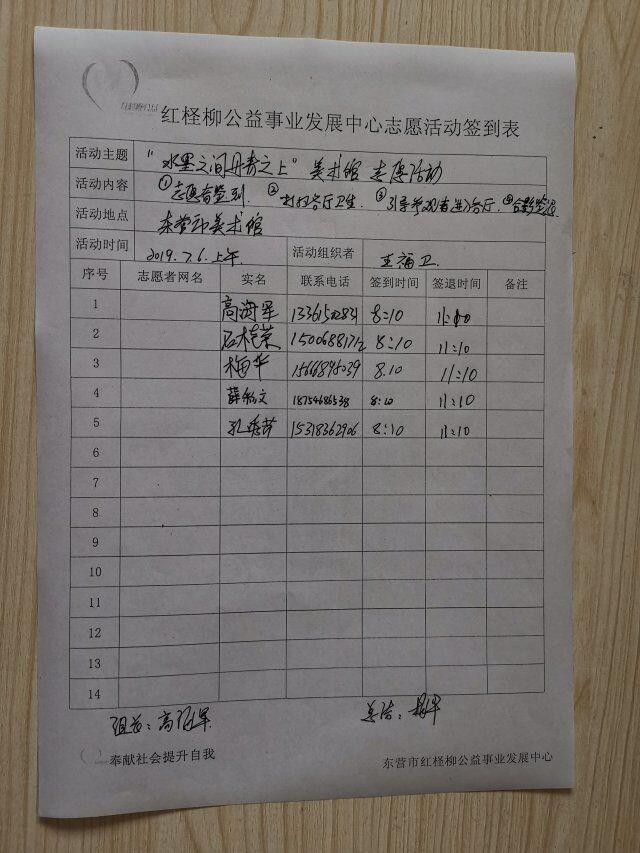 红柽柳公益事业发展中心志愿活动签到表
活动主题 “水墨之间丹青之上”美术馆 志愿活动
活动内容 ①志愿者签到. ②打扫客厅卫生. ③引导参观者进入客厅. ④合影签退
活动地点 东营市美术馆
活动时间 2019.7.6.上午. 活动组织者 王福卫.
序号 志愿者网名 实名 联系电话 签到时间 签退时间 备注
1 高海军 8:10
2 15006881712 8:10 11:10
3 梅华 15666895039 8.10 11:10
4 18754686538 8:10 11:10
5 孔秀芬 15318362906 8:10 11:10
6
7
8
9
10
11
12
13
14
组长:高海军 总结:梅华
奉献社会提升自我 东营市红柽柳公益事业发展中心